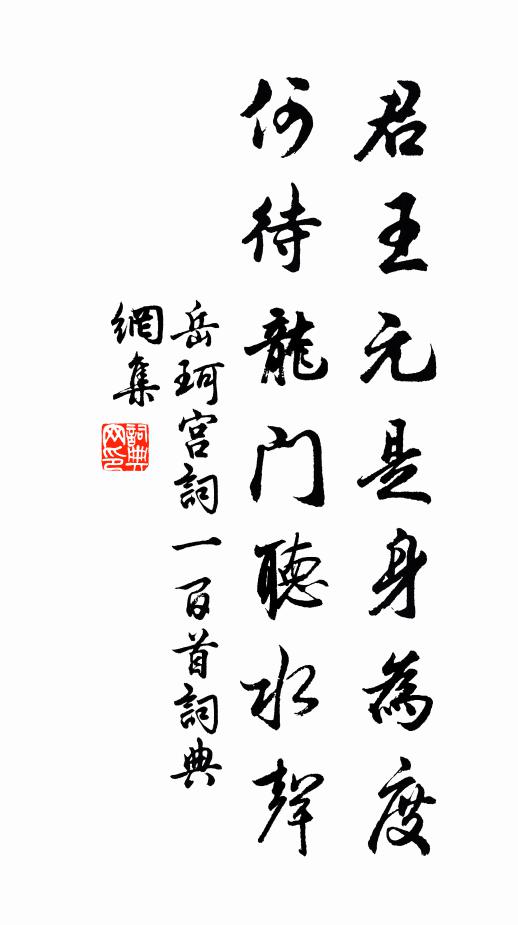 君王元是身為度
何待龍門聽水聲
岳珂宮詞一百首詞典
網集
詞典網印